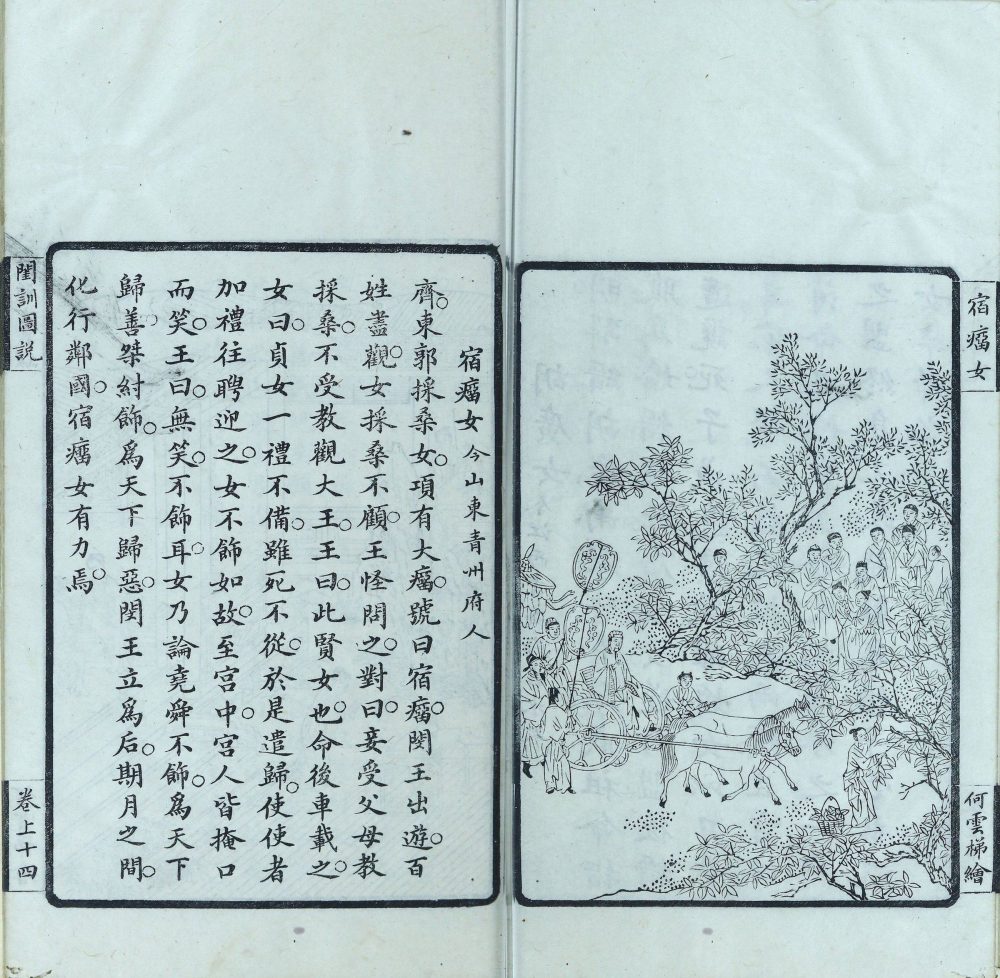 宿瘤女
何雲梯繪
宿瘤女 今山東青州府人
齊。東郭採桑女。項有大瘤。號曰宿瘤。閔王出遊。百
姓盡觀。女採桑不顧。王怪問之。對曰。妾受父母教
採桑。不受教觀大王。王曰。此賢女也。命後車載之。
女曰。貞女一禮不備。雖死不從。於是遣歸。使使者
加禮往聘迎之。女不飾如故。至宮中。宮人皆掩口
而笑。王曰。無笑。不飾耳。女乃論堯舜不飾。為天下
歸善。桀紂飾。為天下歸惡。閔王立為后。期月之間。
化行鄰國。宿瘤女有力焉。
閨訓圖說
卷上十四